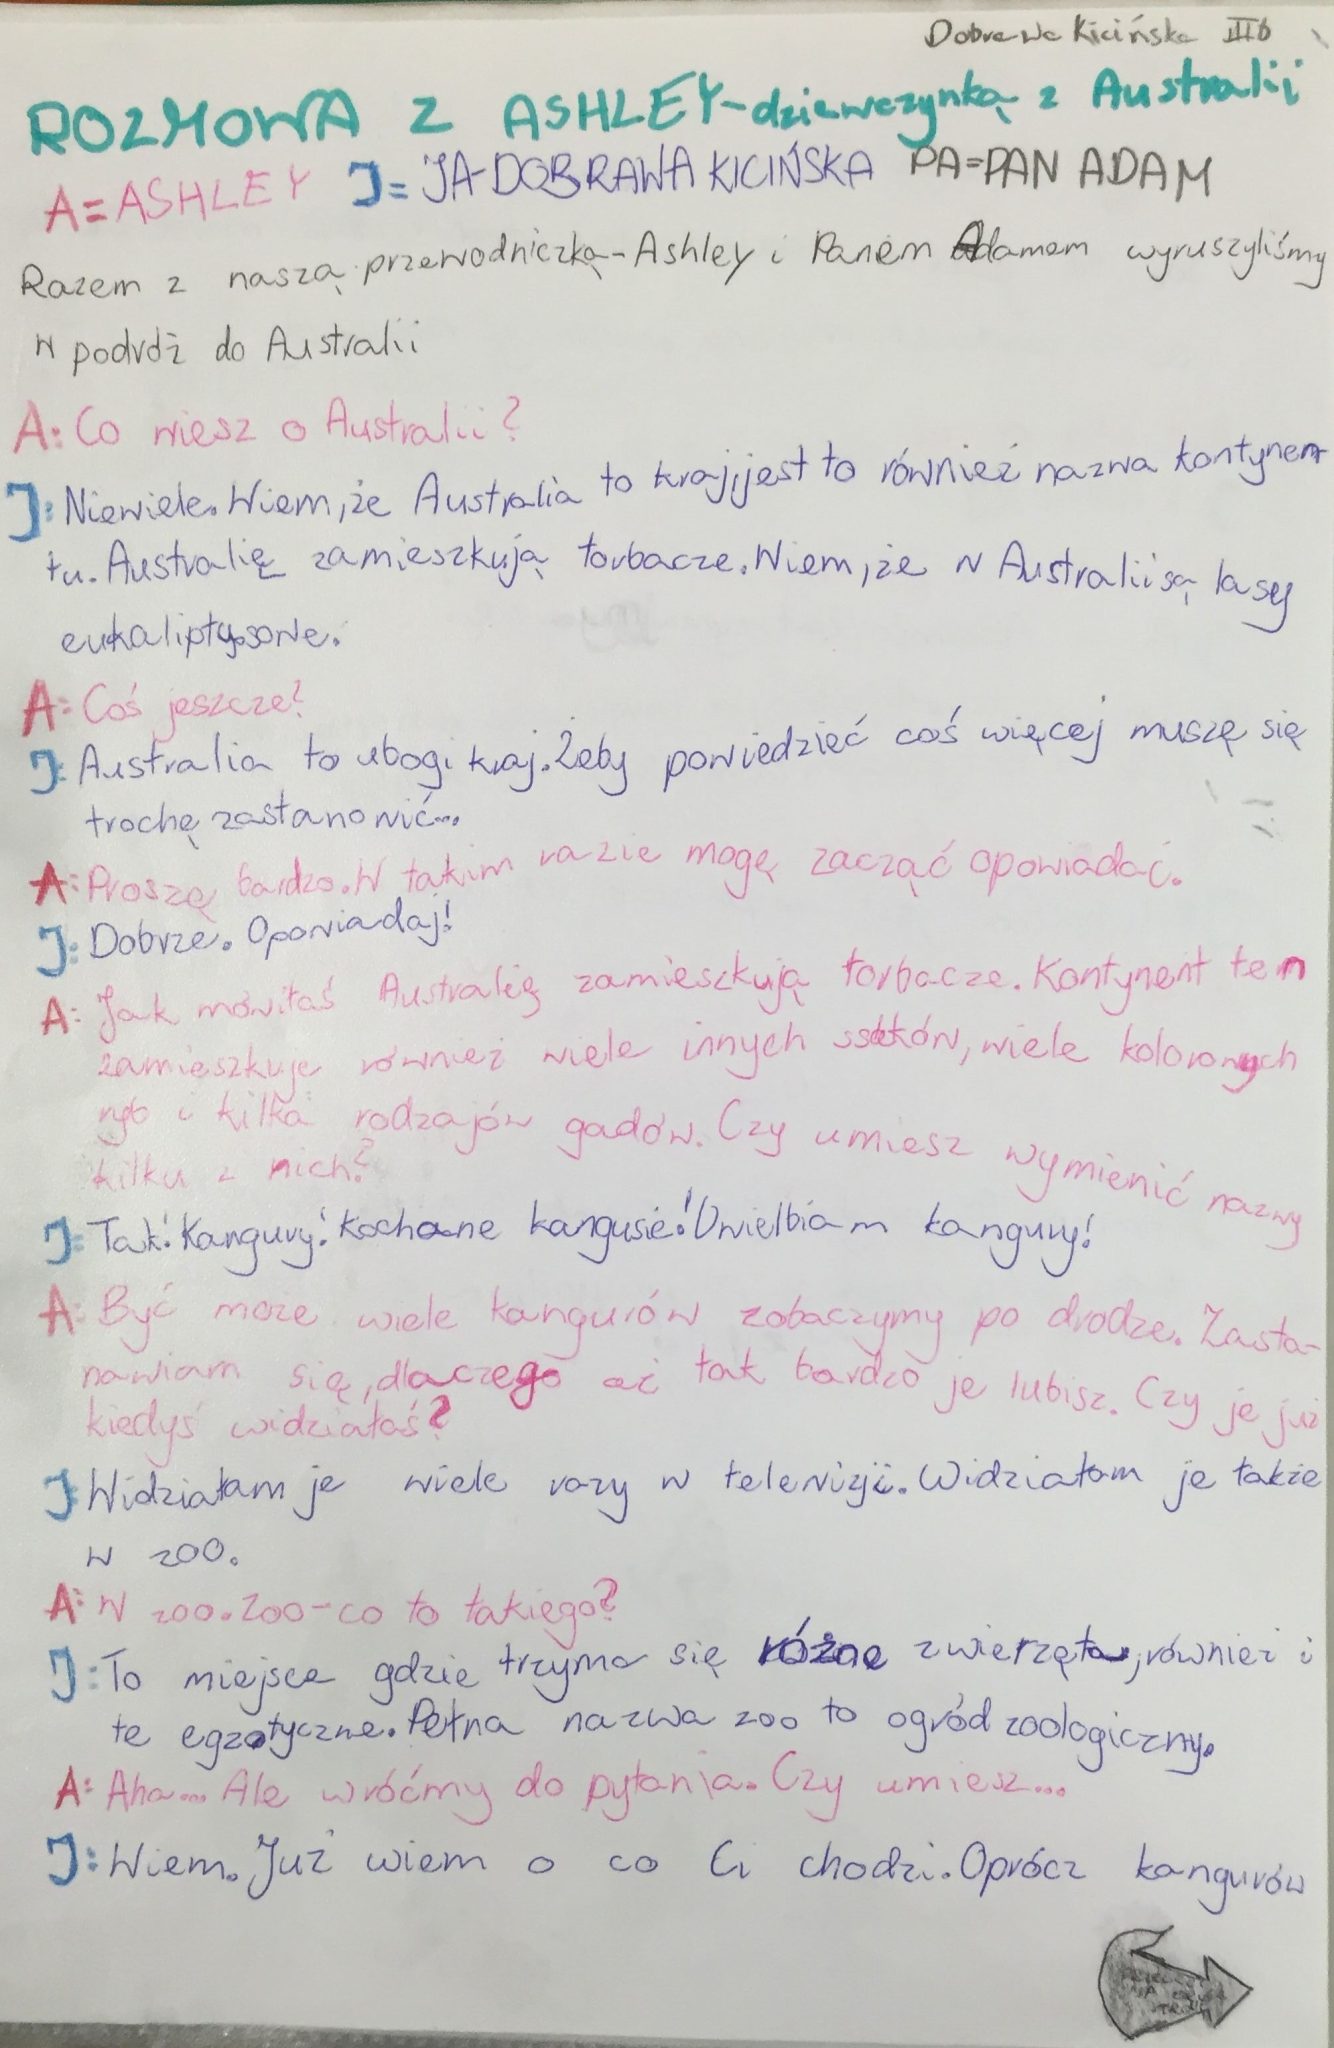 Dobrawa Kicińska IIIb
ROZMOWA Z ASHLEY-dziewczynką z Australii
A=ASHLEY J=JA-DOBRAWA KICIŃSKA PA=PAN ADAM
Razem z naszą przewodniczką-Ashley i Panem Adamem wyruszyliśmy
w podróż do Australii
A: Co wiesz o Australii?
J: Niewiele. Wiem, że Australia to kraj, jest to również nazwa kontynen
tu. Australię zamieszkują torbacze. Wiem, że w Australii są lasy
eukaliptusowe.
A: Coś jeszcze?
J: Australia to ubogi kraj. Żeby powiedzieć coś więcej muszę się
trochę zastanowić...
A: Proszę bardzo. W takim razie mogę zacząć opowiadać.
J: Dobrze. Opowiadaj!
A: Jak mówiłaś Australię zamieszkują torbacze. Kontynent ten
zamieszkuje również wiele innych ssaków, wiele kolorowych
ryb i kilka rodzajów gadów. Czy umiesz wymienić nazwy
kilku z nich?
J: Tak! Kangury! Kochane kangusie! Uwielbiam kangury!
A: Być może wiele kangurów zobaczymy po drodze. Zasta-
nawiam się, dlaczego aż tak bardzo je lubisz. Czy je już
kiedyś widziałaś?
J: Widziałam je wiele razy w telewizji. Widziałam je także
w zoo.
A: W zoo. Zoo-co to takiego?
J: To miejsce gdzie trzyma się różne zwierzęta, również i
te egzotyczne. Pełna nazwa zoo to ogród zoologiczny.
A: Aha... Ale wróćmy do pytania. Czy umiesz...
J: Wiem. Już wiem o co Ci chodzi. Oprócz kangurów